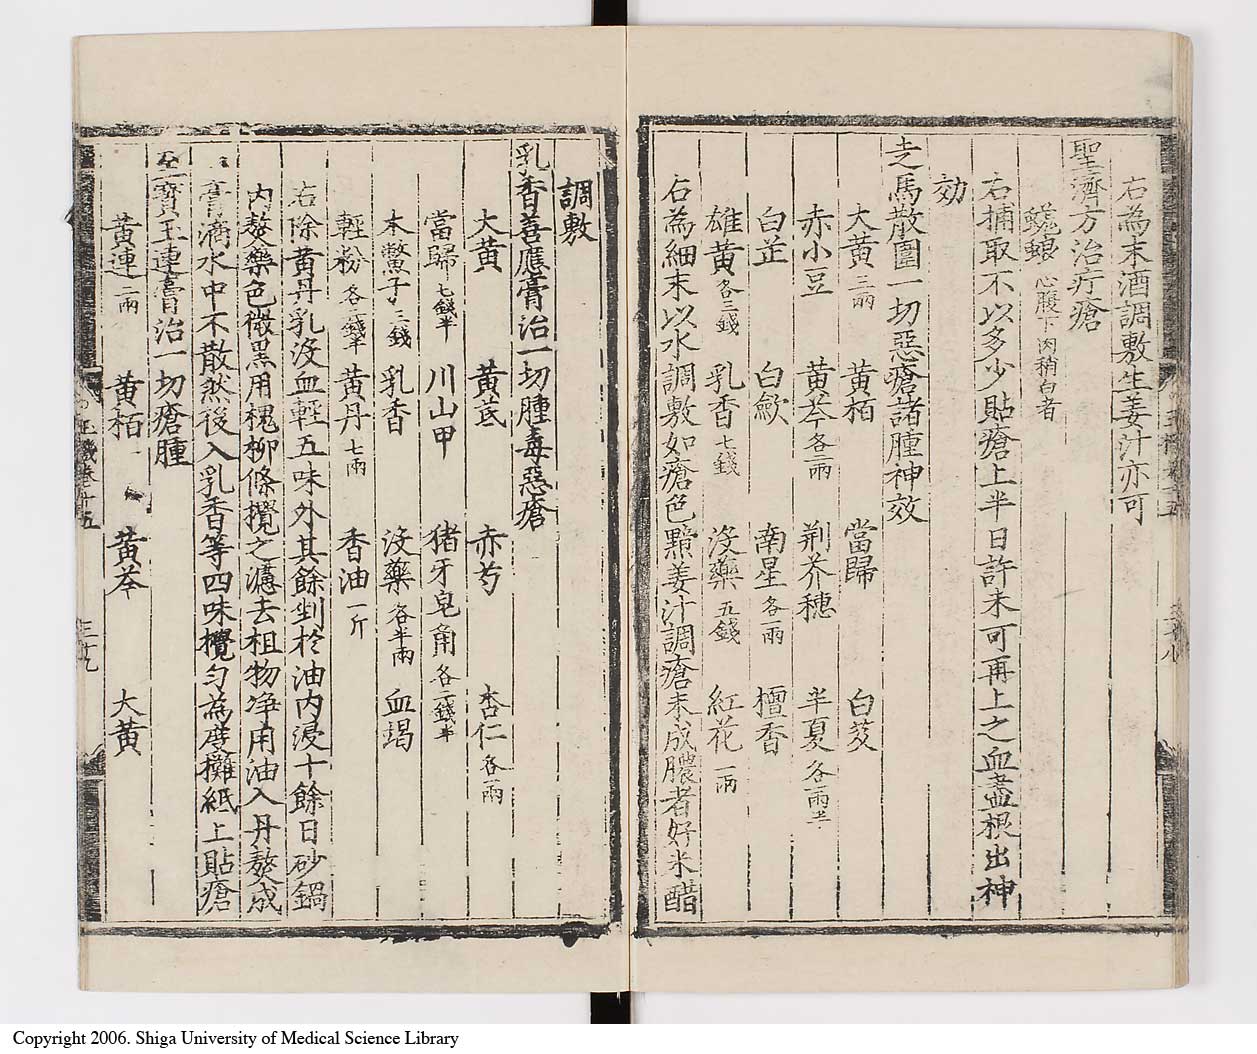 右為末酒調敷生姜汁亦可
聖濟方治疔瘡
蜣蜋 心腹下肉稍白者
右捕取不以多少貼瘡上半日許未可再上之血盡根出神
効
走馬散圍一切惡瘡諸腫神效
大黃三兩 黃栢 當歸 白芨
赤小豆 黃芩各二兩 荆芥穗 半夏各一兩半
白芷 白歛 南星各一兩 檀香
雄黃各三錢 乳香七錢 沒藥五錢 紅花一兩
右為細末以水調敷如瘡色黯姜汁調瘡未成膿者好米醋
調敷
乳香善應膏治一切腫毒惡瘡
大黃 黃茋 赤芍 杏仁各一兩
當歸七錢半 川山甲 猪牙皂角各二錢半
木鱉子三錢 乳香 沒藥各半兩 血竭
輕粉各二錢半 黃丹七兩 香油一斤
右除黃丹乳沒血輕五味外其餘剉於油内浸十餘日砂鍋
内熬藥色微黑用槐柳條攪之濾去柤物净用油入丹熬成
膏滴水中不散然後入乳香等四味攪勻為度攤紙上貼瘡
至寶玉連膏治一切瘡腫
黃連二兩 黃栢 黃芩 大黃
玉機卷十五
三十九
Copyright 2006. Shiga University of Medical Science Library